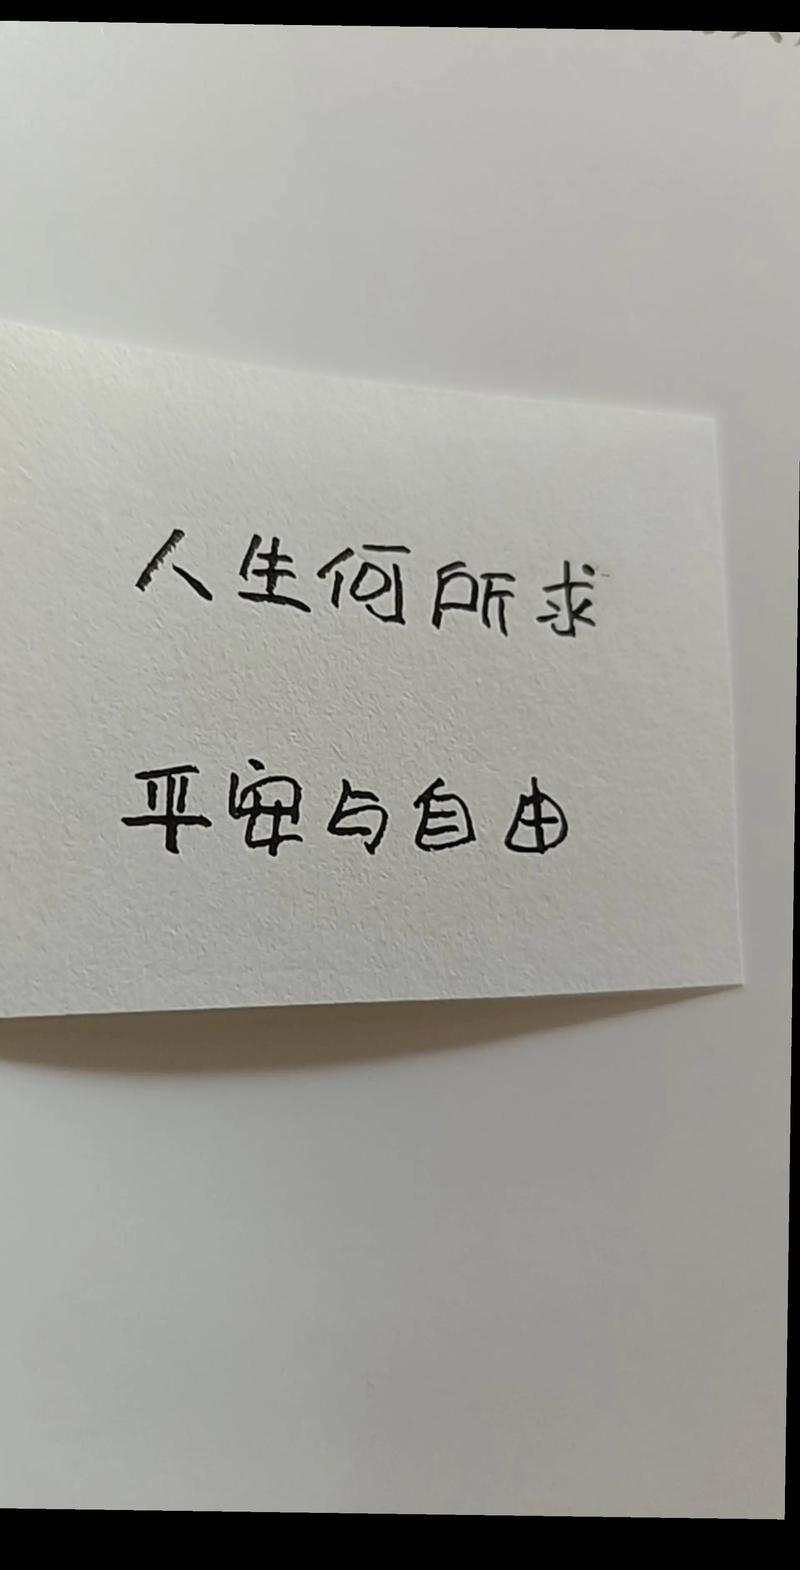 人生何所求
平安与自由